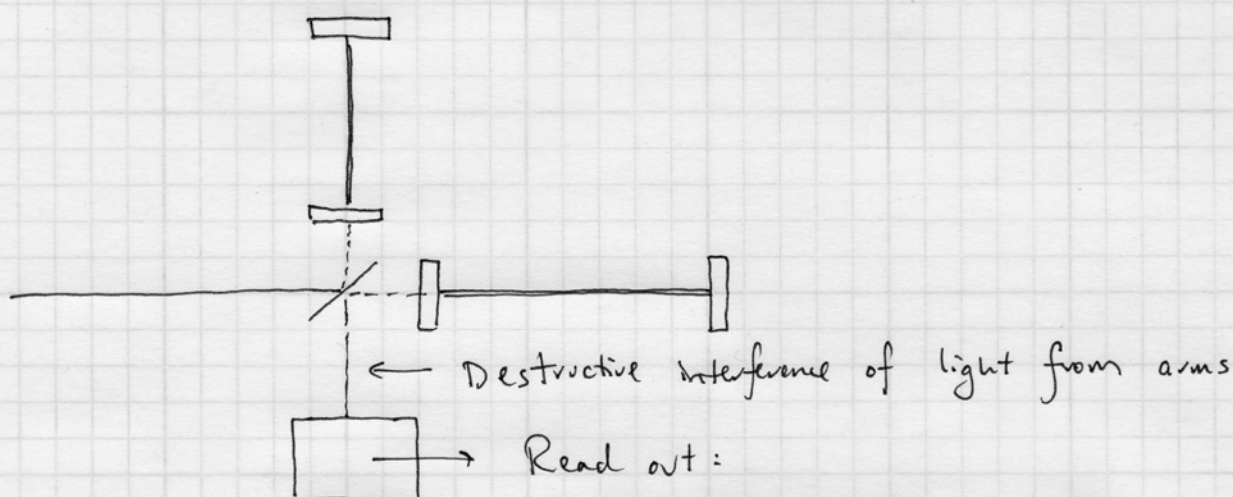 ← Destructive interference of light from arms
Read out: